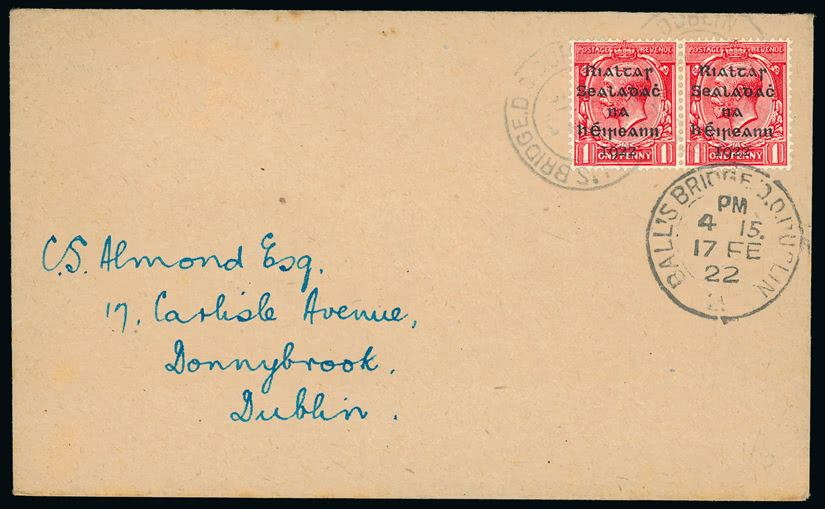 DUBLIN
S BRIDGE.D.O.DU
POSTAGE REVENUE POSTAGE REVENUE
Rialtas Rialtas
Sealadaċ Sealadaċ
na na
hÉireann hÉireann
1922 1922
1 ONE PENNY 1 1 ONE PENNY 1
BALL'S BRIDGE.D.O.DUBLIN
PM
4 15.
17 FE
22
C.S. Almond Esq.
17, Carlisle Avenue,
Donnybrook.
Dublin.